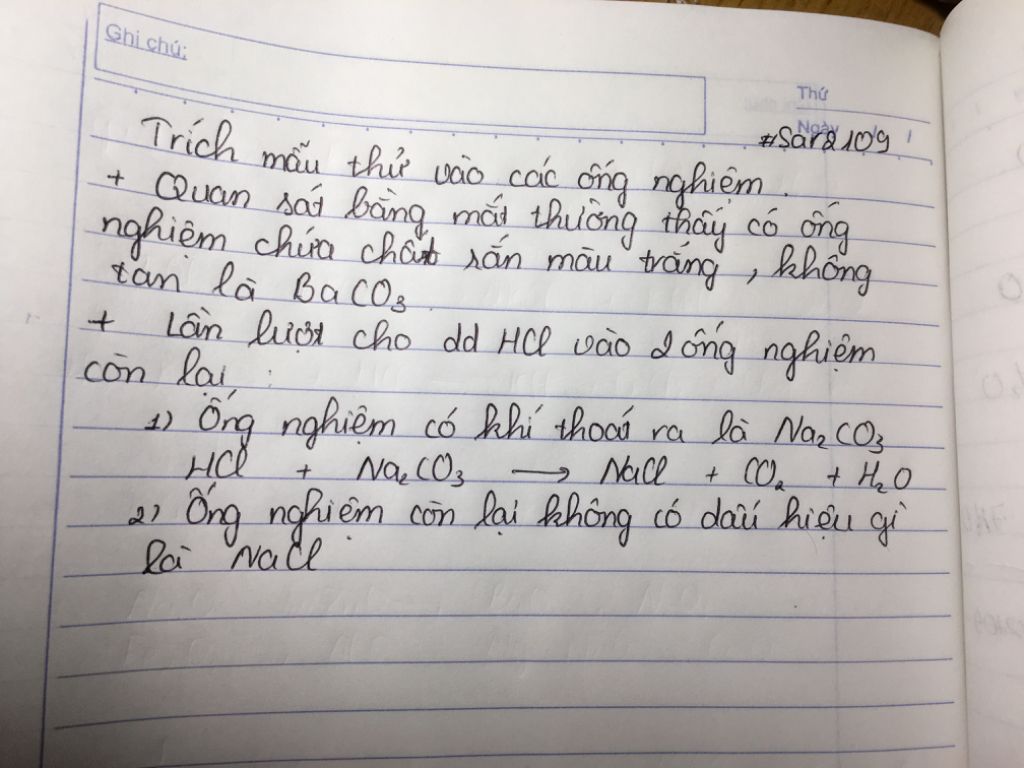 Ghi chú:
Thứ
Ngày
#Sara109
Trích mẫu thử vào các ống nghiệm.
+ Quan sát bằng mắt thường thấy có ống
nghiệm chứa chất rắn màu trắng, không
tan là BaCO₃
+ Lần lượt cho dd HCl vào 2 ống nghiệm
còn lại :
1) Ống nghiệm có khí thoát ra là Na₂CO₃
HCl + Na₂CO₃ → NaCl + CO₂ + H₂O
2) Ống nghiệm còn lại không có dấu hiệu gì
là NaCl